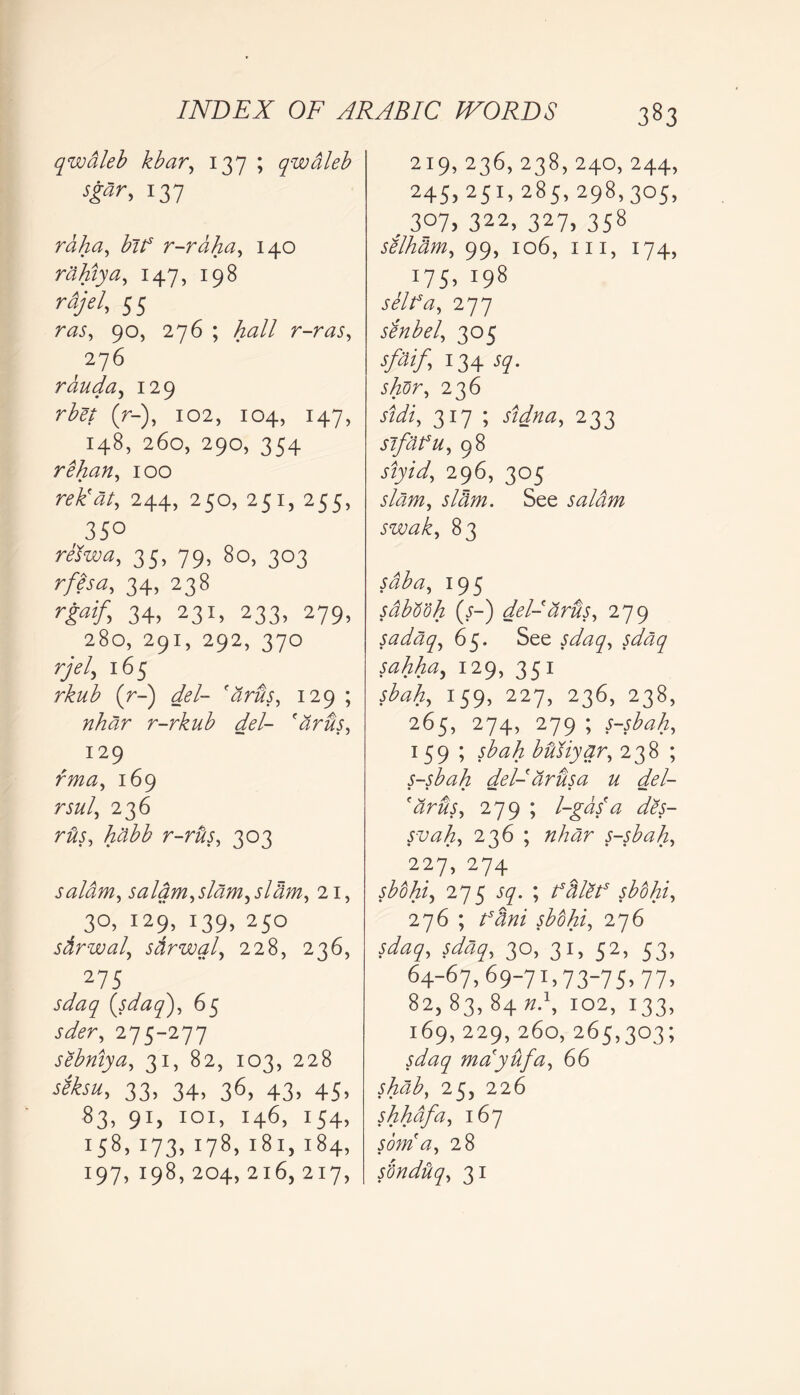 INDEX OF ARABIC WORDS
383
qwâleb kbar, 137 ; qwâleb
sgâr, 137
râḥa, bītˢ r-râḥa, 140
râḥîya, 147, 198
râjel, 55
ras, 90, 276 ; ḥall r-ras,
276
râuḍa, 129
rbĕṭ (r-), 102, 104, 147,
148, 260, 290, 354
rêhan, 100
rekʽât, 244, 250, 251, 255,
350
rešwa, 35, 79, 80, 303
rfêsa, 34, 238
rgaif, 34, 231, 233, 279,
280, 291, 292, 370
rjel, 165
rkub (r-) ḏel- ʽârûṣ, 129 ;
nhâr r-rkub ḏel- ʽârûṣ,
129
rma, 169
rsul, 236
rûṣ, ḥàbb r-rûṣ, 303
salâm, salạm, slâm, slăm, 21,
30, 129, 139, 250
sàrwal, sàrwạl, 228, 236,
275
sdaq (ṣdaq), 65
sder, 275-277
sĕbnîya, 31, 82, 103, 228
sĕksu, 33, 34, 36, 43, 45,
83, 91, 101, 146, 154,
158, 173, 178, 181, 184,
197, 198, 204, 216, 217,
219, 236, 238, 240, 244,
245, 251, 285, 298, 305,
307, 322, 327, 358
sĕlhăm, 99, 106, 111, 174,
175, 198
sĕltˢa, 277
sĕnbel, 305
sfăif, 134 sq.
shōr, 236
sîdi, 317 ; sîḏna, 233
sīfătˢu, 98
sîyid, 296, 305
slâm, slăm. See salâm
swak, 83
ṣâba, 195
ṣâbŏŏḥ (ṣ-) ḏel-ʽârûṣ, 279
ṣadâq, 65. See ṣdaq, ṣdâq
ṣaḥḥa, 129, 351
ṣbaḥ, 159, 227, 236, 238,
265, 274, 279 ; ṣ-ṣbaḥ,
159 ; ṣbaḥ bûšiyạr, 238 ;
ṣ-ṣbaḥ ḏel-ʽârûṣa u ḏel-
ʽârûṣ, 279 ; l-gâṣʽa dĕṣ-
ṣvaḥ, 236 ; nhâr ṣ-ṣbaḥ,
227, 274
ṣbôḥi, 275 sq. ; tˢălĕtˢ ṣbôḥi,
276 ; tˢăni ṣbôḥi, 276
ṣdaq, ṣdâq, 30, 31, 52, 53,
64-67, 69-71, 73-75, 77,
82, 83, 84 n.¹, 102, 133,
169, 229, 260, 265, 303;
ṣdaq maʽyûfa, 66
ṣḥâb, 25, 226
ṣḥḥâfa, 167
ṣômʽa, 28
ṣôndûq, 31